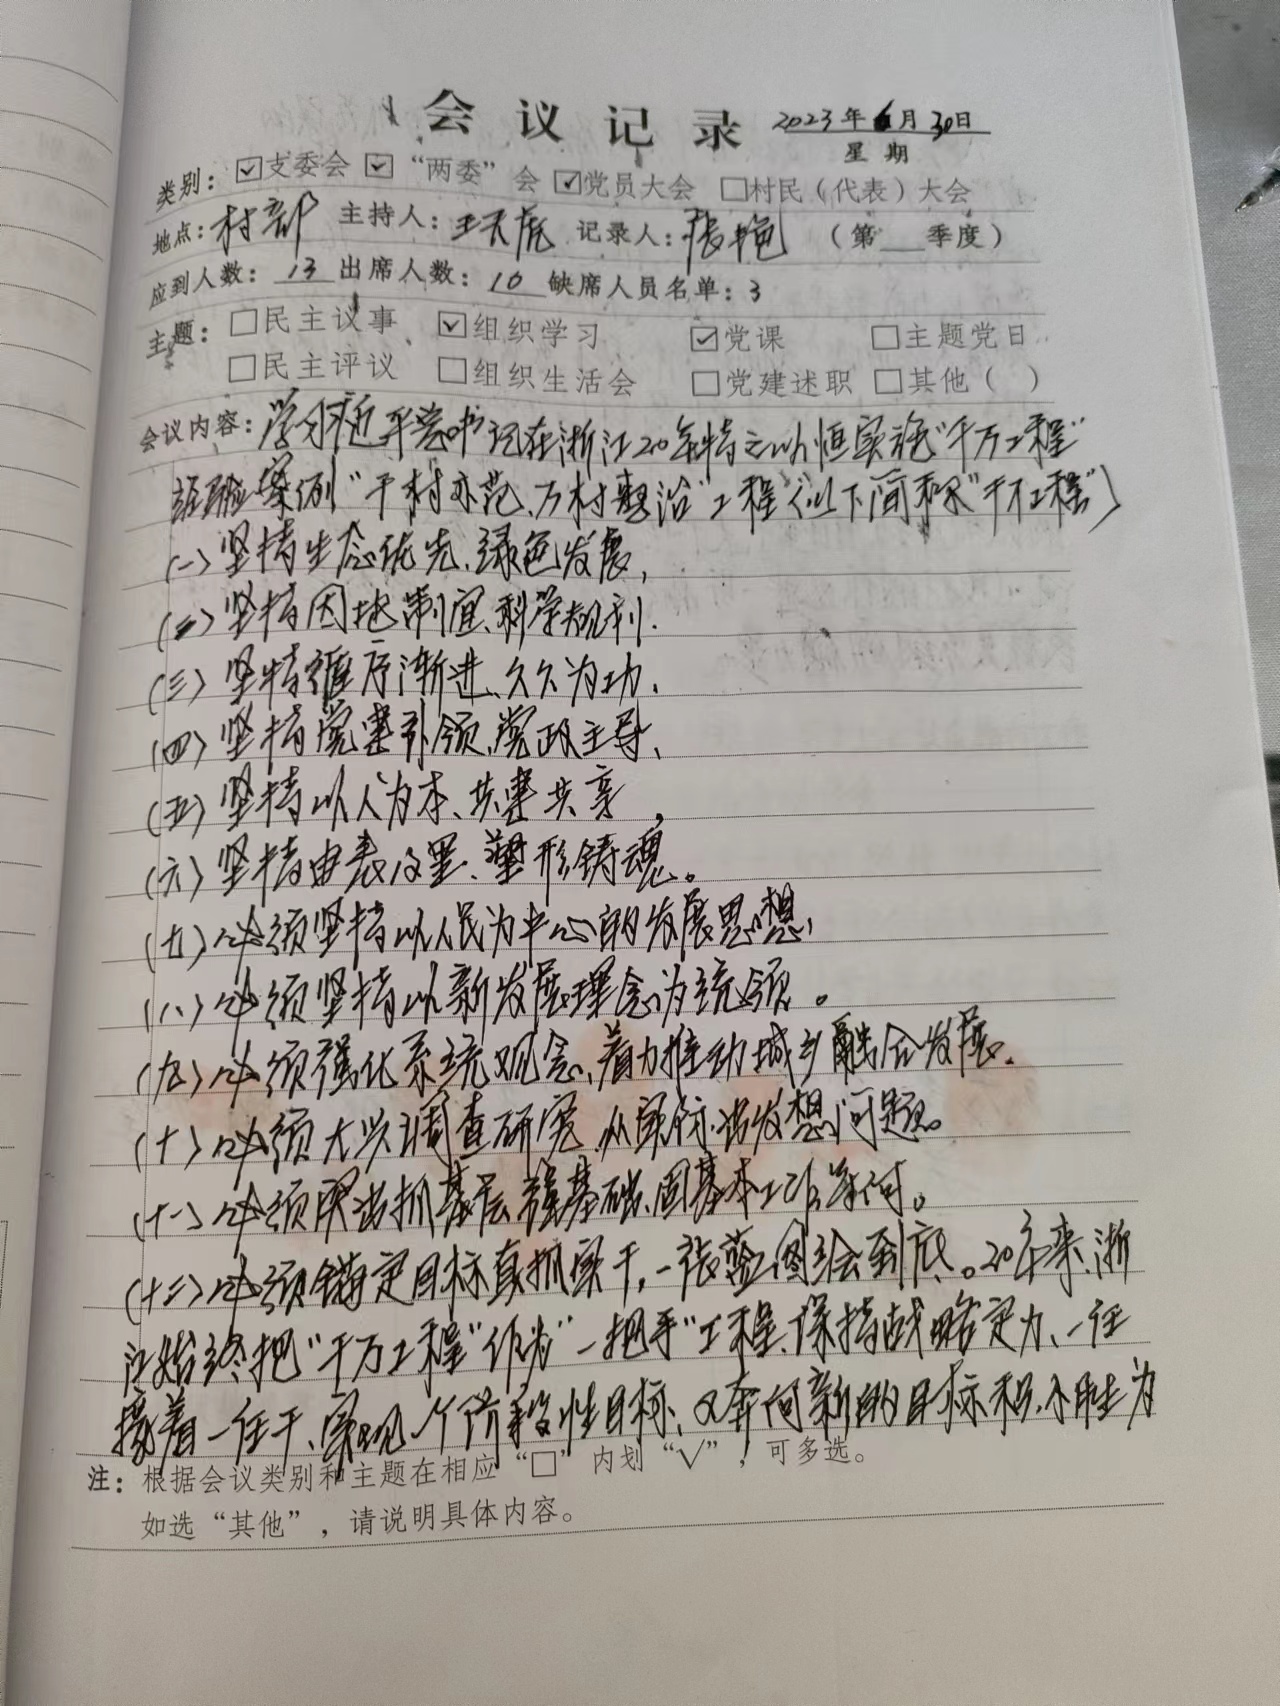 会议记录 2023年6月30日
星期
类别：☑支委会 ☑“两委”会 ☑党员大会 □村民（代表）大会
地点：村部 主持人：王天虎 记录人：张艳 （第 季度）
应到人数：13 出席人数：10 缺席人员名单：3
主题：□民主议事 ☑组织学习 ☑党课 □主题党日
□民主评议 □组织生活会 □党建述职 □其他（ ）
会议内容：学习习近平总书记在浙江20年持之以恒实施“千万工程”
经验案例“千村示范、万村整治”工程（以下简称“千万工程”）
（一）坚持生态优先、绿色发展，
（二）坚持因地制宜、科学规划.
（三）坚持循序渐进、久久为功、
（四）坚持党建引领、党政主导、
（五）坚持以人为本、共建共享，
（六）坚持由表及里、塑形铸魂。
（七）必须坚持以人民为中心的发展思想，
（八）必须坚持以新发展理念为统领。
（九）必须强化系统观念、着力推动城乡融合发展.
（十）必须大兴调查研究，从实际出发想问题。
（十一）必须突出抓基层、强基础、固基本工作导向。
（十二）必须锚定目标真抓实干，一张蓝图绘到底。20年来，浙
江始终把“千万工程”作为“一把手”工程、保持战略定力、一任
接着一任干、实现一个阶段性目标、又奔向新的目标积小胜为
注：根据会议类别和主题在相应“□”内划“√”，可多选。
如选“其他”，请说明具体内容。